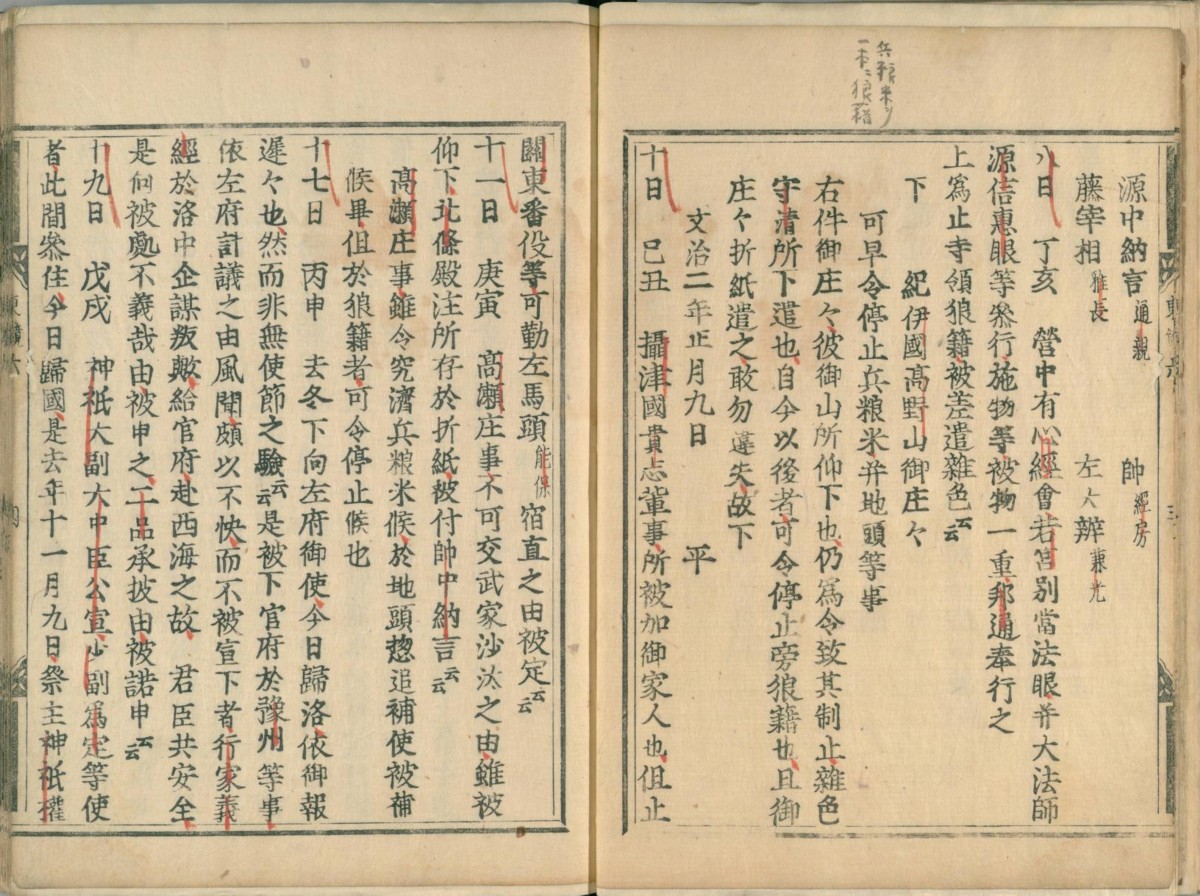 兵粮米ノ
一本ニ狼藉
源中納言通親　帥經房
藤宰相雅長　左大辨兼光
八日　丁亥　營中有心經會若宮別當法眼并大法師
源信惠眼等參行施物等被物一重邦通奉行之
上爲止寺領狼籍被差遣雜色云云
下　紀伊國高野山御庄々
可早令停止兵粮米并地頭等事
右件御庄々彼御山所仰下也仍爲令致其制止雜色
守清所下遣也自今以後者可令停止旁狼藉也且御
庄々折紙遣之敢勿違失故下
文治二年正月九日　平
十日　己丑　攝津國貴志輩事所被加御家人也但止
關東番役等可勤左馬頭能保宿直之由被定云云
十一日　庚寅　高瀬庄事不可交武家沙汰之由雖被
仰下北條殿注所存於折紙被付帥中納言云云
高瀬庄事雖令究濟兵粮米候於地頭惣追補使被補
候畢但於狼籍者可令停止候也
十七日　丙申　去冬下向左府御使今日歸洛依御報
遲々也然而非無使節之驗云云是被下官府於豫州等事
依左府計議之由風聞頗以不快而不被宣下者行家義
經於洛中企謀叛歟給官府赴西海之故君臣共安全
是何被處不義哉由被申之二品承披由被諾申云云
十九日　戊戌　神祇大副大中臣公宣少副爲定等使
者此間參住今日歸國是去年十一月九日祭主神祇權